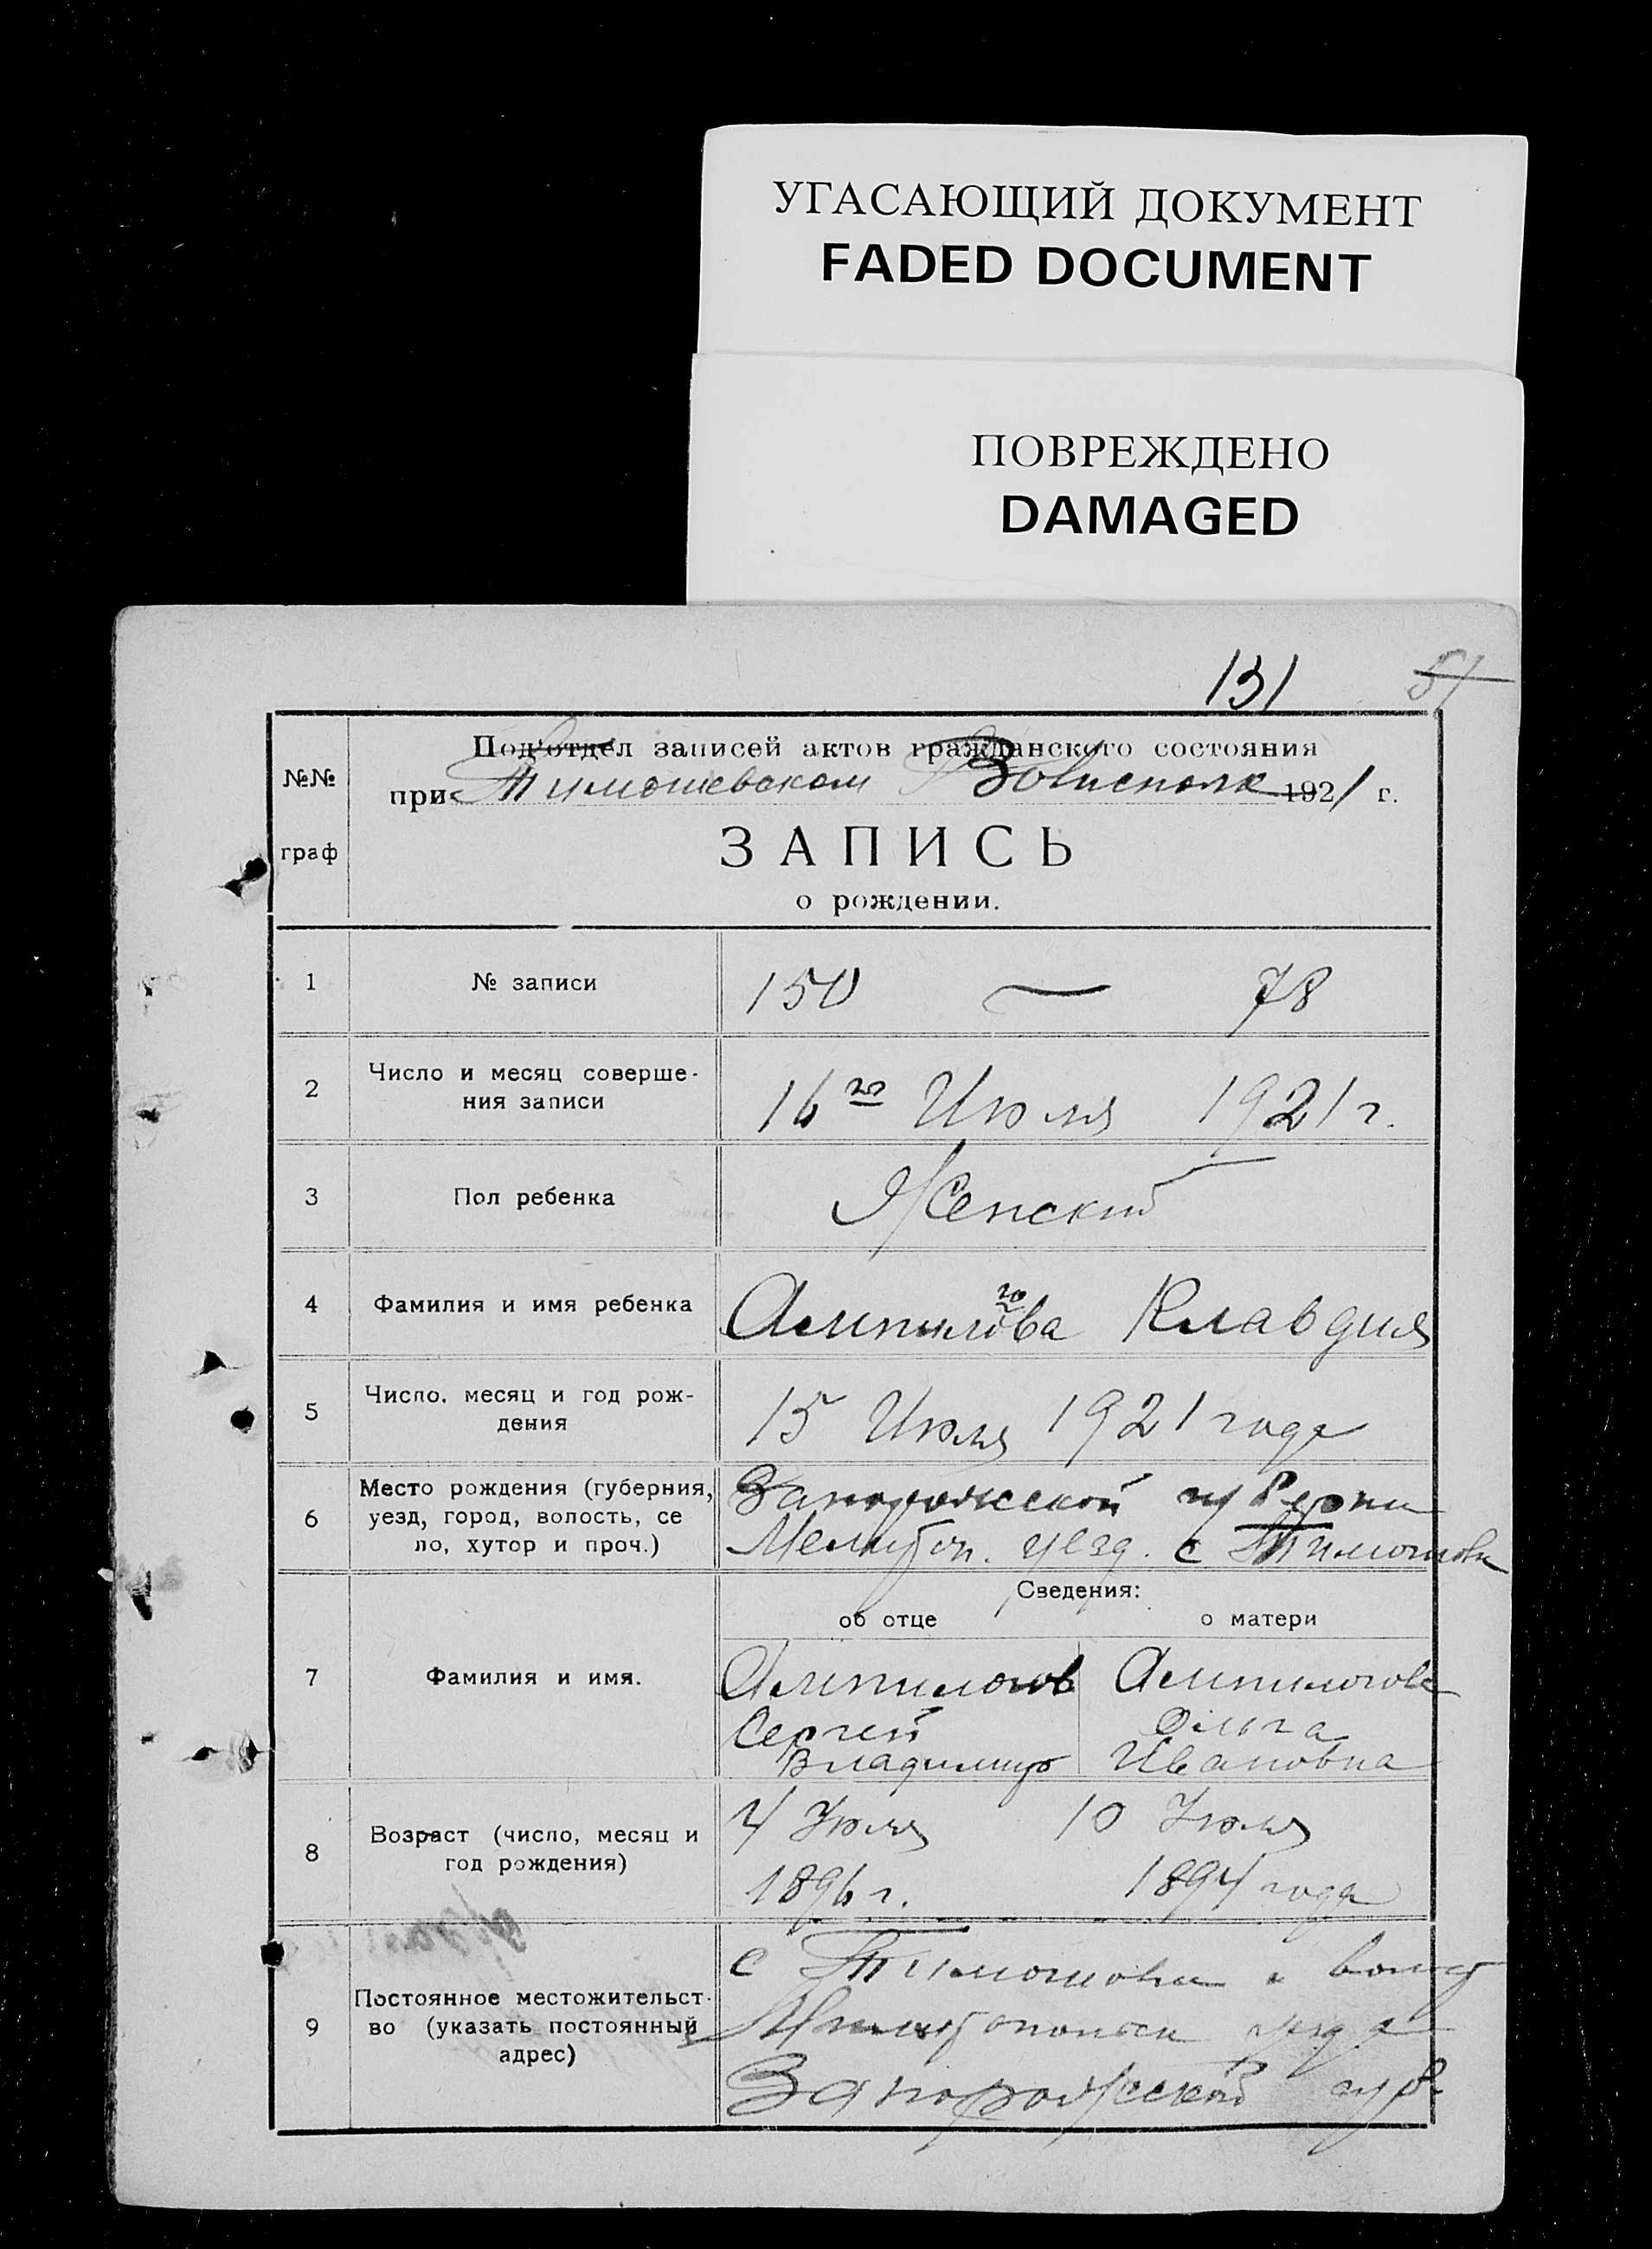 УГАСАЮЩИЙ ДОКУМЕНТ
FADED DOCUMENT
ПОВРЕЖДЕНО
DAMAGED
131 51
№№ граф
Под'отдел записей актов гражданского состояния
при Тимошевском Волисполк 1921 г.
ЗАПИСЬ
о рождении.
1 № записи 150 — 78
2 Число и месяц соверше-
ния записи 16го Июля 1921 г.
3 Пол ребенка Женский
4 Фамилия и имя ребенка Алпилогова Клавдия
5 Число, месяц и год рож-
дения 15 Июля 1921 года
6 Место рождения (губерния,
уезд, город, волость, се
ло, хутор и проч.)
Запорожской губерни
Мелитоп. уезд. с Тимошовк
Сведения:
об отце о матери
7 Фамилия и имя.
Алпилогов Алпилогова
Сергей Ольга
Владимир Ивановна
8 Возраст (число, месяц и
год рождения)
4 Июля 10 Июля
1896 г. 1894 года
9 Постоянное местожительст-
во (указать постоянный
адрес)
с Тимошовки волост
Мелитопольск уезда
Запорожской губ.